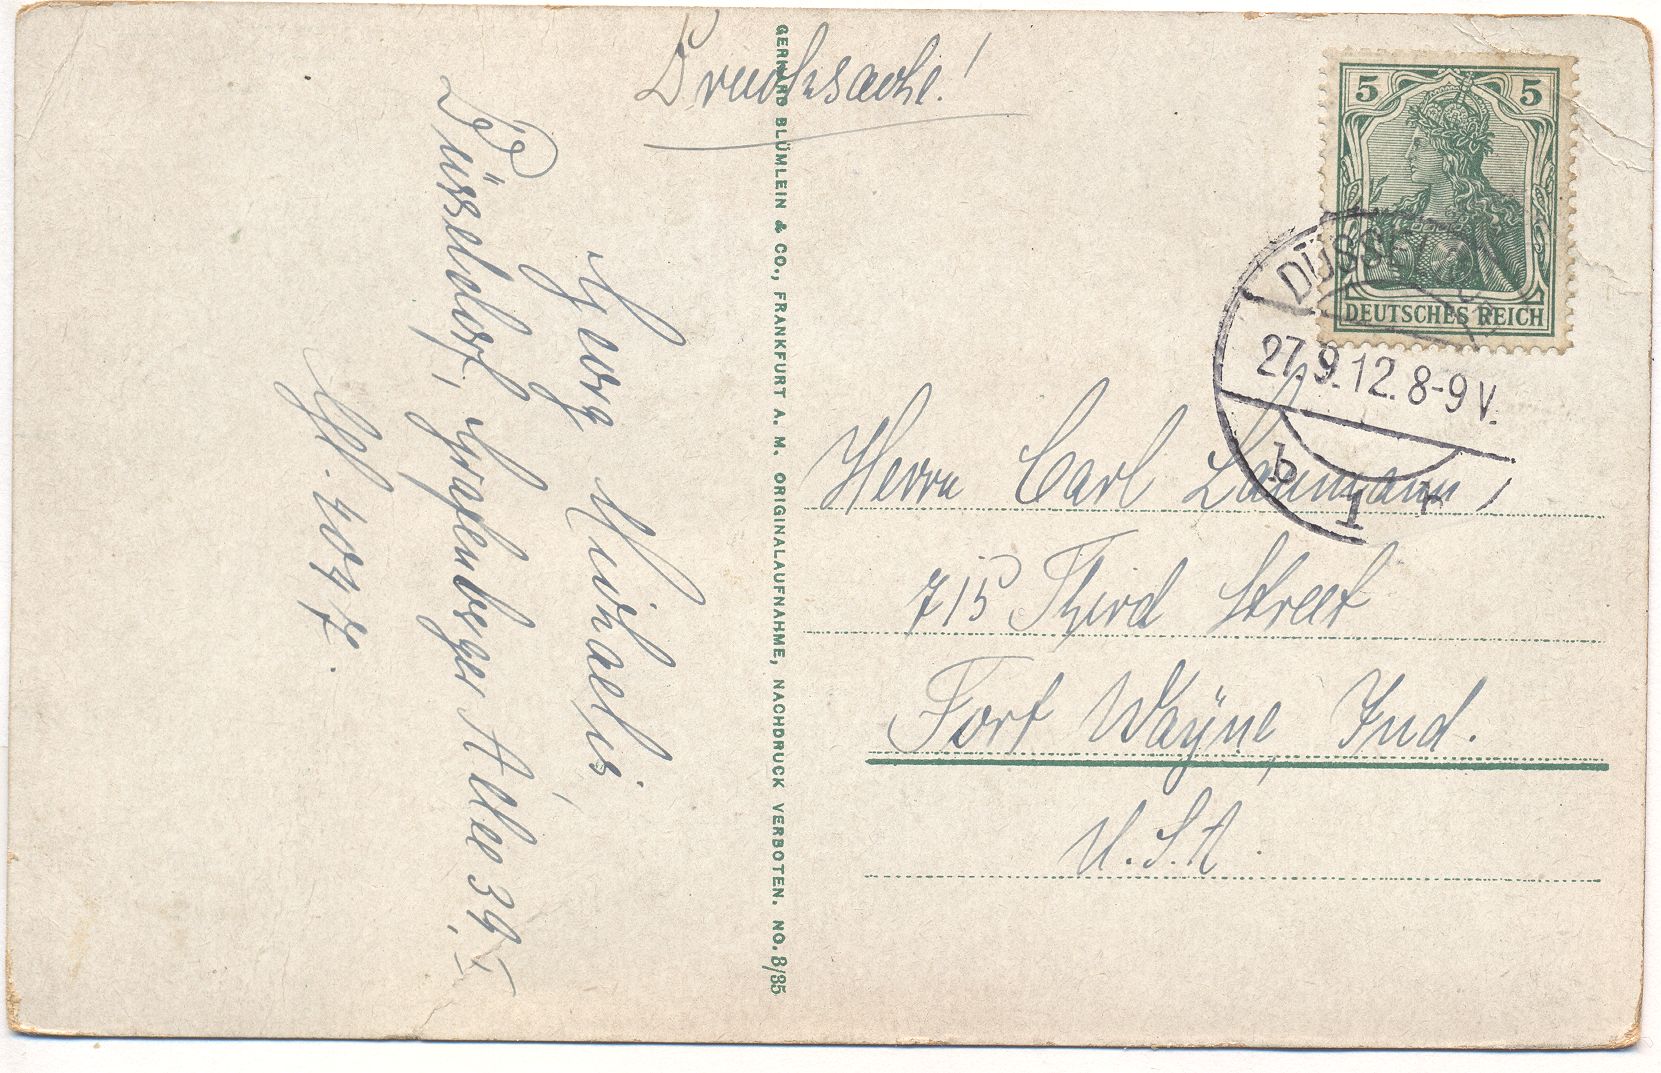 Drucksache!
Georg Michaelis,
Düsseldorf, Grafenberger Allee 39, I
GERHARD BLÜMLEIN & CO., FRANKFURT A. M. ORIGINALAUFNAHME, NACHDRUCK VERBOTEN. NO. 8/35
5 5
DEUTSCHES REICH
DÜSSEL
27.9.12. 8-9 V.
b 1 r
Herrn Carl Laumann,
715 Third Street
Fort Waÿne, Ind.
U.S.A.